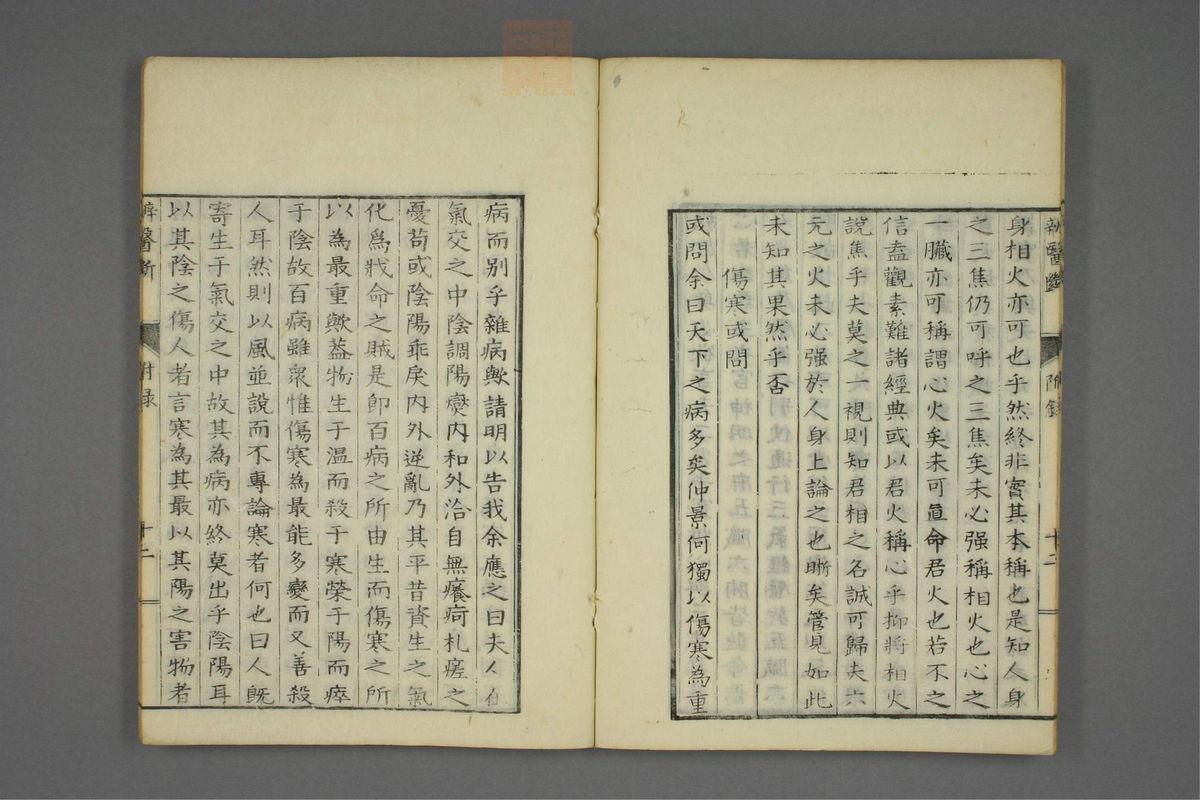 身相火亦可也乎然終非實其本稱也是知人身
之三焦仍可呼之三焦矣未必强稱相火也心之
一臟亦可稱謂心火矣未可直命君火也若不之
信盍觀素難諸經典或以君火稱心乎抑將相火
說焦乎夫莫之一視則知君相之名誠可歸夫六
元之火未必强於人身上論之也晣矣管見如此
未知其果然乎否
傷寒或問
或問余曰天下之病多矣仲景何獨以傷寒為重
病而别乎雜病歟請明以告我余應之曰夫人在
氣交之中陰調陽燮内和外洽自無癢疴札瘥之
憂苟或陰陽乖戾内外逆亂乃其平昔資生之氣
化爲戕命之賊是卽百病之所由生而傷寒之所
以為最重歟葢物生于温而殺于寒榮于陽而瘁
于陰故百病雖衆惟傷寒為最能多變而又善殺
人耳然則以風並說而不專論寒者何也曰人旣
寄生于氣交之中故其為病亦終莫出乎陰陽耳
以其陰之傷人者言寒為其最以其陽之害物者
辨醫斷
附録
十二